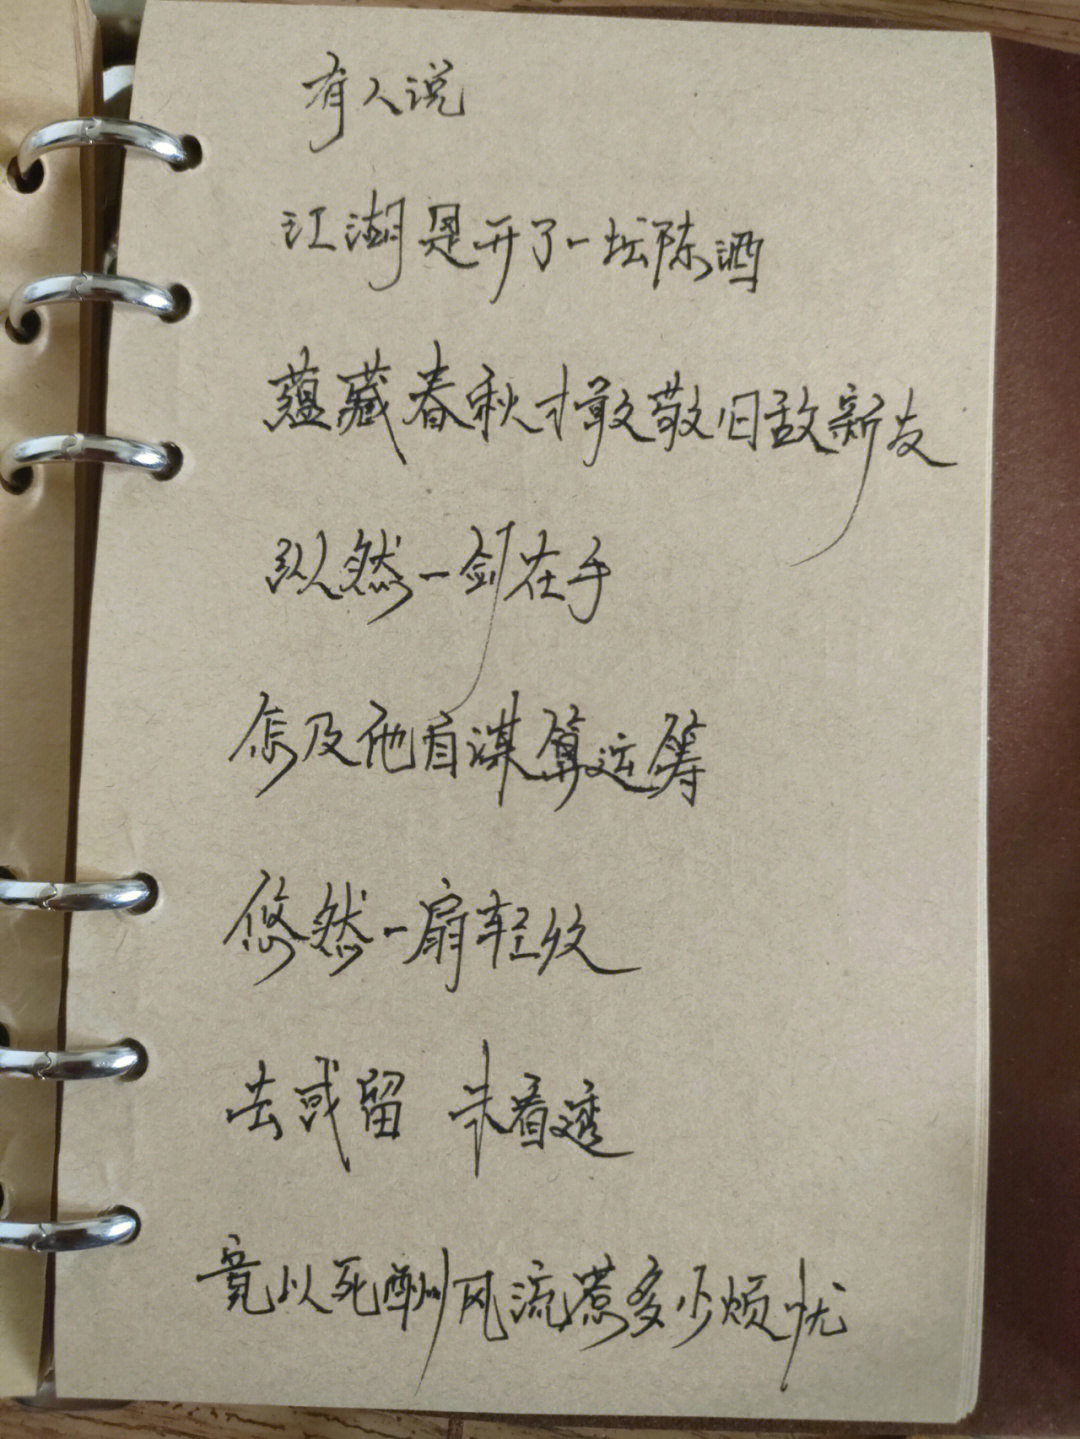 有人说
江湖是开了一坛陈酒
蕴藏春秋才敢敬旧敌新友
纵然一剑在手
怎及他自谋算运筹
悠然一扇轻收
去或留 未看透
竟以死酬风流惹多少烦忧